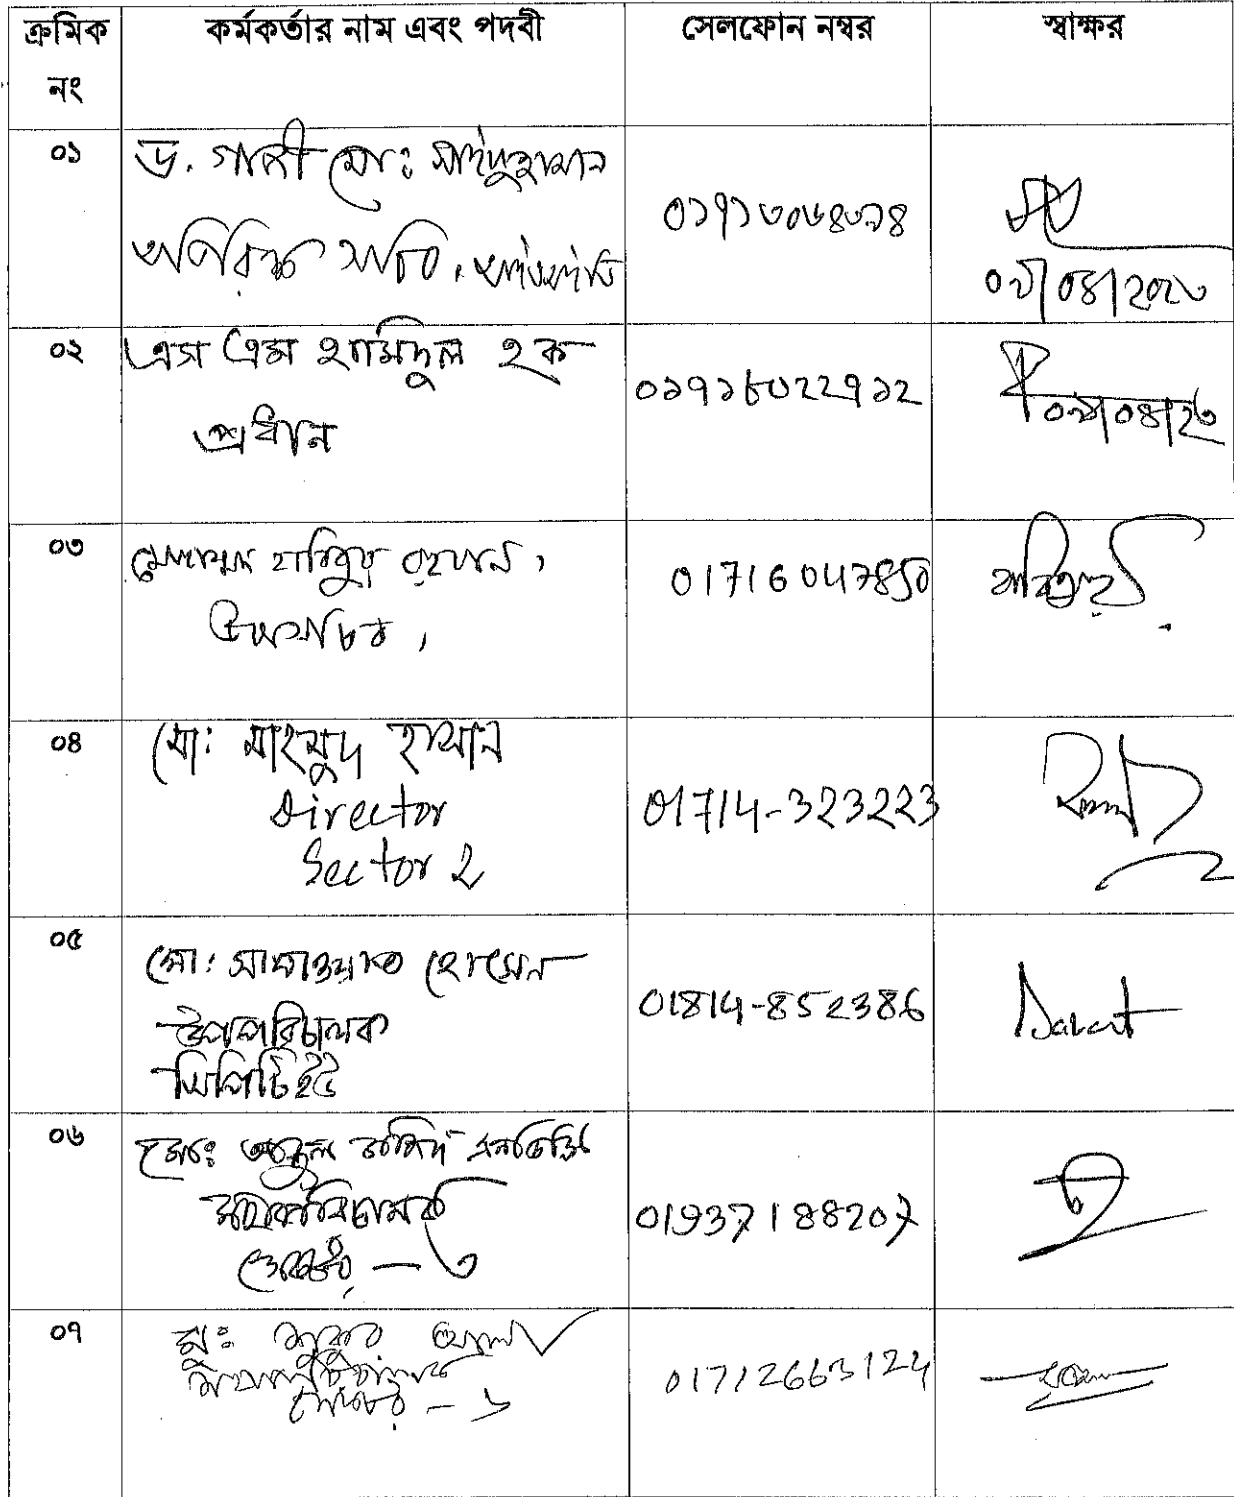 ক্রমিক নং কর্মকর্তার নাম এবং পদবী সেলফোন নম্বর স্বাক্ষর
০১ ড. গাজী মোঃ সাইফুজ্জামান
অতিরিক্ত সচিব, আইএমইডি
০৯/০৪/২০২৩
০২ এস এম হামিদুল হক
প্রধান
০১৭১৮৩২২৭১২
০৯/০৪/২৩
০৩ মোহাম্মদ হাবিবুর রহমান,
উপসচিব,
01716047850
০৪ মোঃ মাহমুদ হাসান
Director
Sector 2
01714-323223
০৫ মোঃ সাখাওয়াত হোসেন
উপপরিচালক
সিপিটিইউ
01814-852386
০৬ মোঃ আব্দুল
সহকারী পরিচালক
সেক্টর - ৩
01937188207
০৭ মুঃ শুকুর আলী
সহকারী পরিচালক
সেক্টর - ৬
01712663124